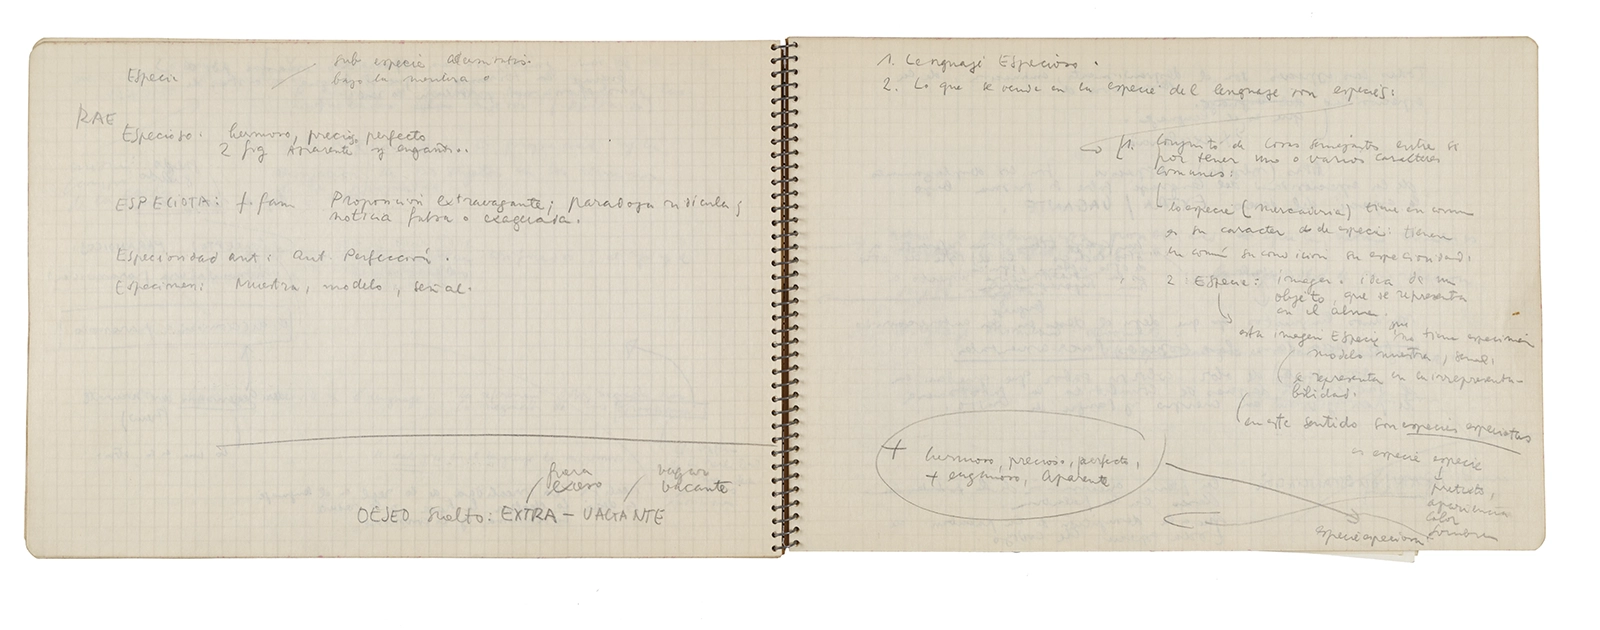 Especie
sub especie
bajo la
RAE
Especioso: hermoso, precioso, perfecto
2 fig Aparente y engañoso.
ESPECIOTA: f. fam Proposición extravagante; paradoja ridícula;
noticia falsa o exagerada.
Especiosidad ant: ant. Perfección.
Especimen: Muestra, modelo, señal.
fuera / vagar
/ exceso / vacante
suelto: EXTRA-VAGANTE
1. Lenguaje Especioso.
2. Lo que se vende en la especie del lenguaje son especies:
1. Conjunto de cosas semejantes entre si
por tener uno o varios caracteres
comunes:
la especie (mercaderia) tiene en comun
su caracter de especie: tienen
en común su condicion su especiosidad.
2 Especie: imagen o idea de un
objeto, que se representa
en el alma.
esta imagen Especie que no tiene especimen
modelo muestra, señal.
se representa en su irrepresenta-
bilidad.
en este sentido son especies especiotas
es especie especie
pretexto,
apariencia
color
sombra
especie especiosa
+ hermoso, precioso, perfecto,
+ engañoso, Aparente